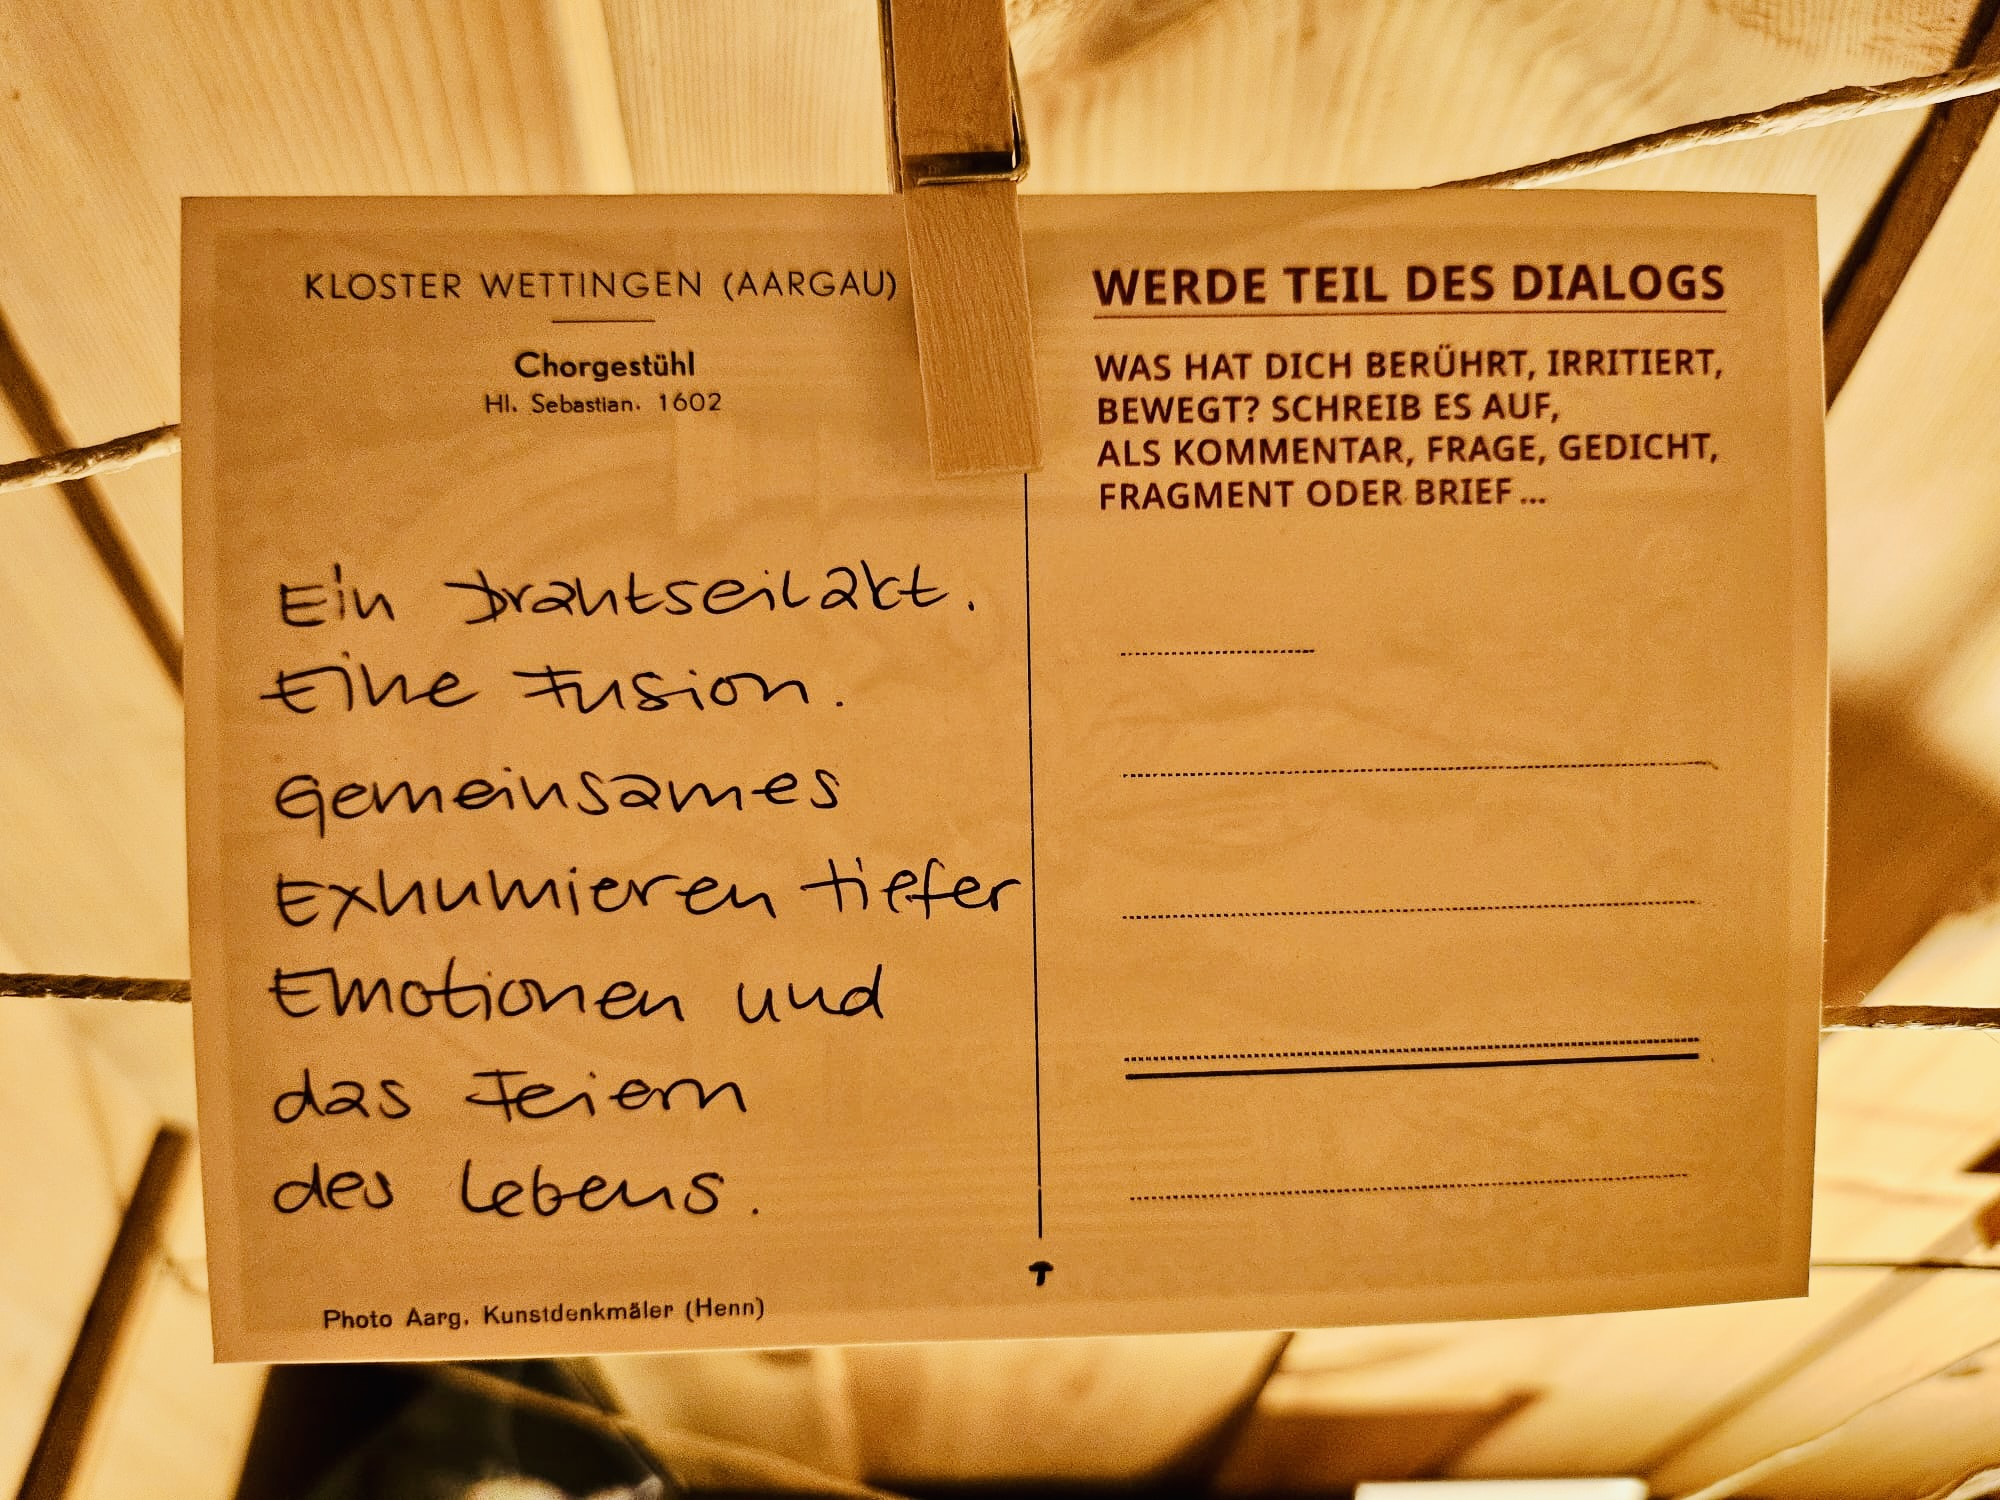 KLOSTER WETTINGEN (AARGAU)
Chorgestühl
Hl. Sebastian. 1602
Ein Drahtseilakt.
Eine Fusion.
Gemeinsames
Exhumieren tiefer
Emotionen und
das Feiern
des Lebens.
Photo Aarg. Kunstdenkmäler (Henn)
WERDE TEIL DES DIALOGS
WAS HAT DICH BERÜHRT, IRRITIERT,
BEWEGT? SCHREIB ES AUF,
ALS KOMMENTAR, FRAGE, GEDICHT,
FRAGMENT ODER BRIEF ...